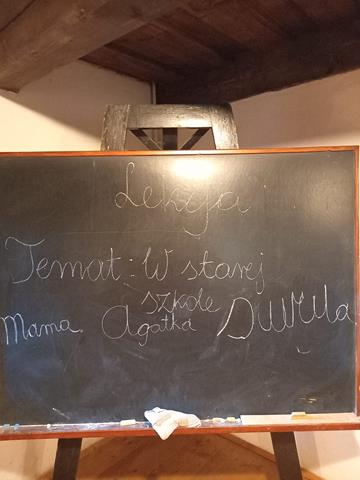 Lekcja
Temat: W starej
szkole
Mama Agatka